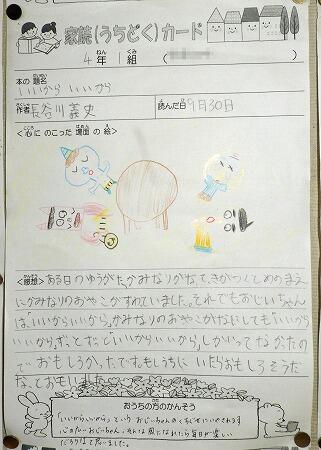 家読(うちどく)カード
4年1組
本の題名
いいから いいから
作者 長谷川義史
読んだ日 9月30日
<心にのこった場面の絵>
<感想>ある日のゆうがた、かみなりがなって、きがつくとめのまえ
にかみなりのおやこがすわていました。それでもおじいちゃん
は「いいからいいから」。かみなりのおやこがなにしても「いいから
いいから」ずっとずっといいからいいから」しかいってなかたの
でおもしろかったです。もしうちに いたらおもしろそうだ
な、とおもいました
おうちの方のかんそう
「いいから、いいから」という おじいちゃんのくちぐせにいやされます
心の広いおじいちゃん。そんな風になれたら毎日が楽しい
だろうなと思いました。